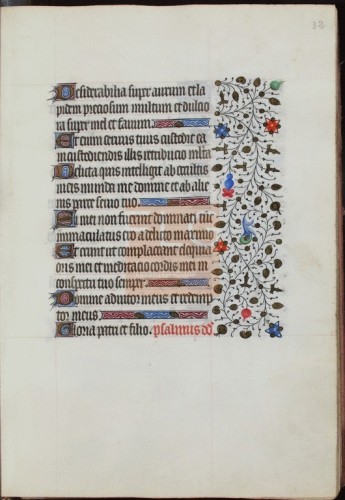 38
Desiderabilia super aurum et la
pidem preciosum multum et dulcio
ra super mel et fauum.
Etenim seruus tuus custodit ea
in custodiendis illis retributio mlta
Delicta quis intelligit ab occultis
meis munda me domine et ab alie
nis parce seruo tuo
Si mei non fuerint dominati tuc
inmaculatus ero a delicto maximo
Et erunt ut complaceant eloquia
oris mei et meditacio cordis mei in
conspectu tuo semper
Domine adiutor meus et redemp
tor meus.
Gloria patri et filio. psalmus dd